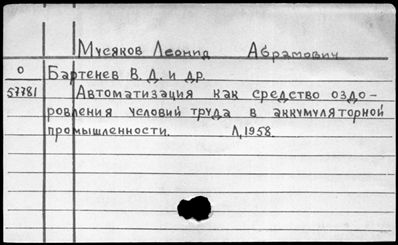 Мусяков Леонид Абрамович
О Бартенев В.Д. и др.
57781 Автоматизация как средство оздо-
ровления условий труда в аккумуляторной
промышленности. Л, 1958.